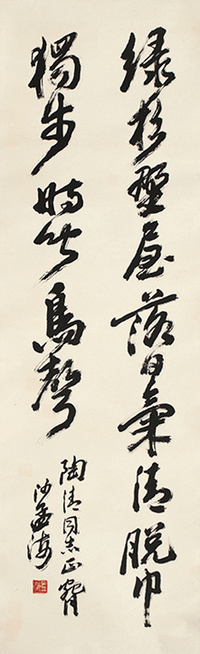 绿杉野屋落日氣清脱巾
獨步時聞鳥聲
陶清同志正
沙孟海